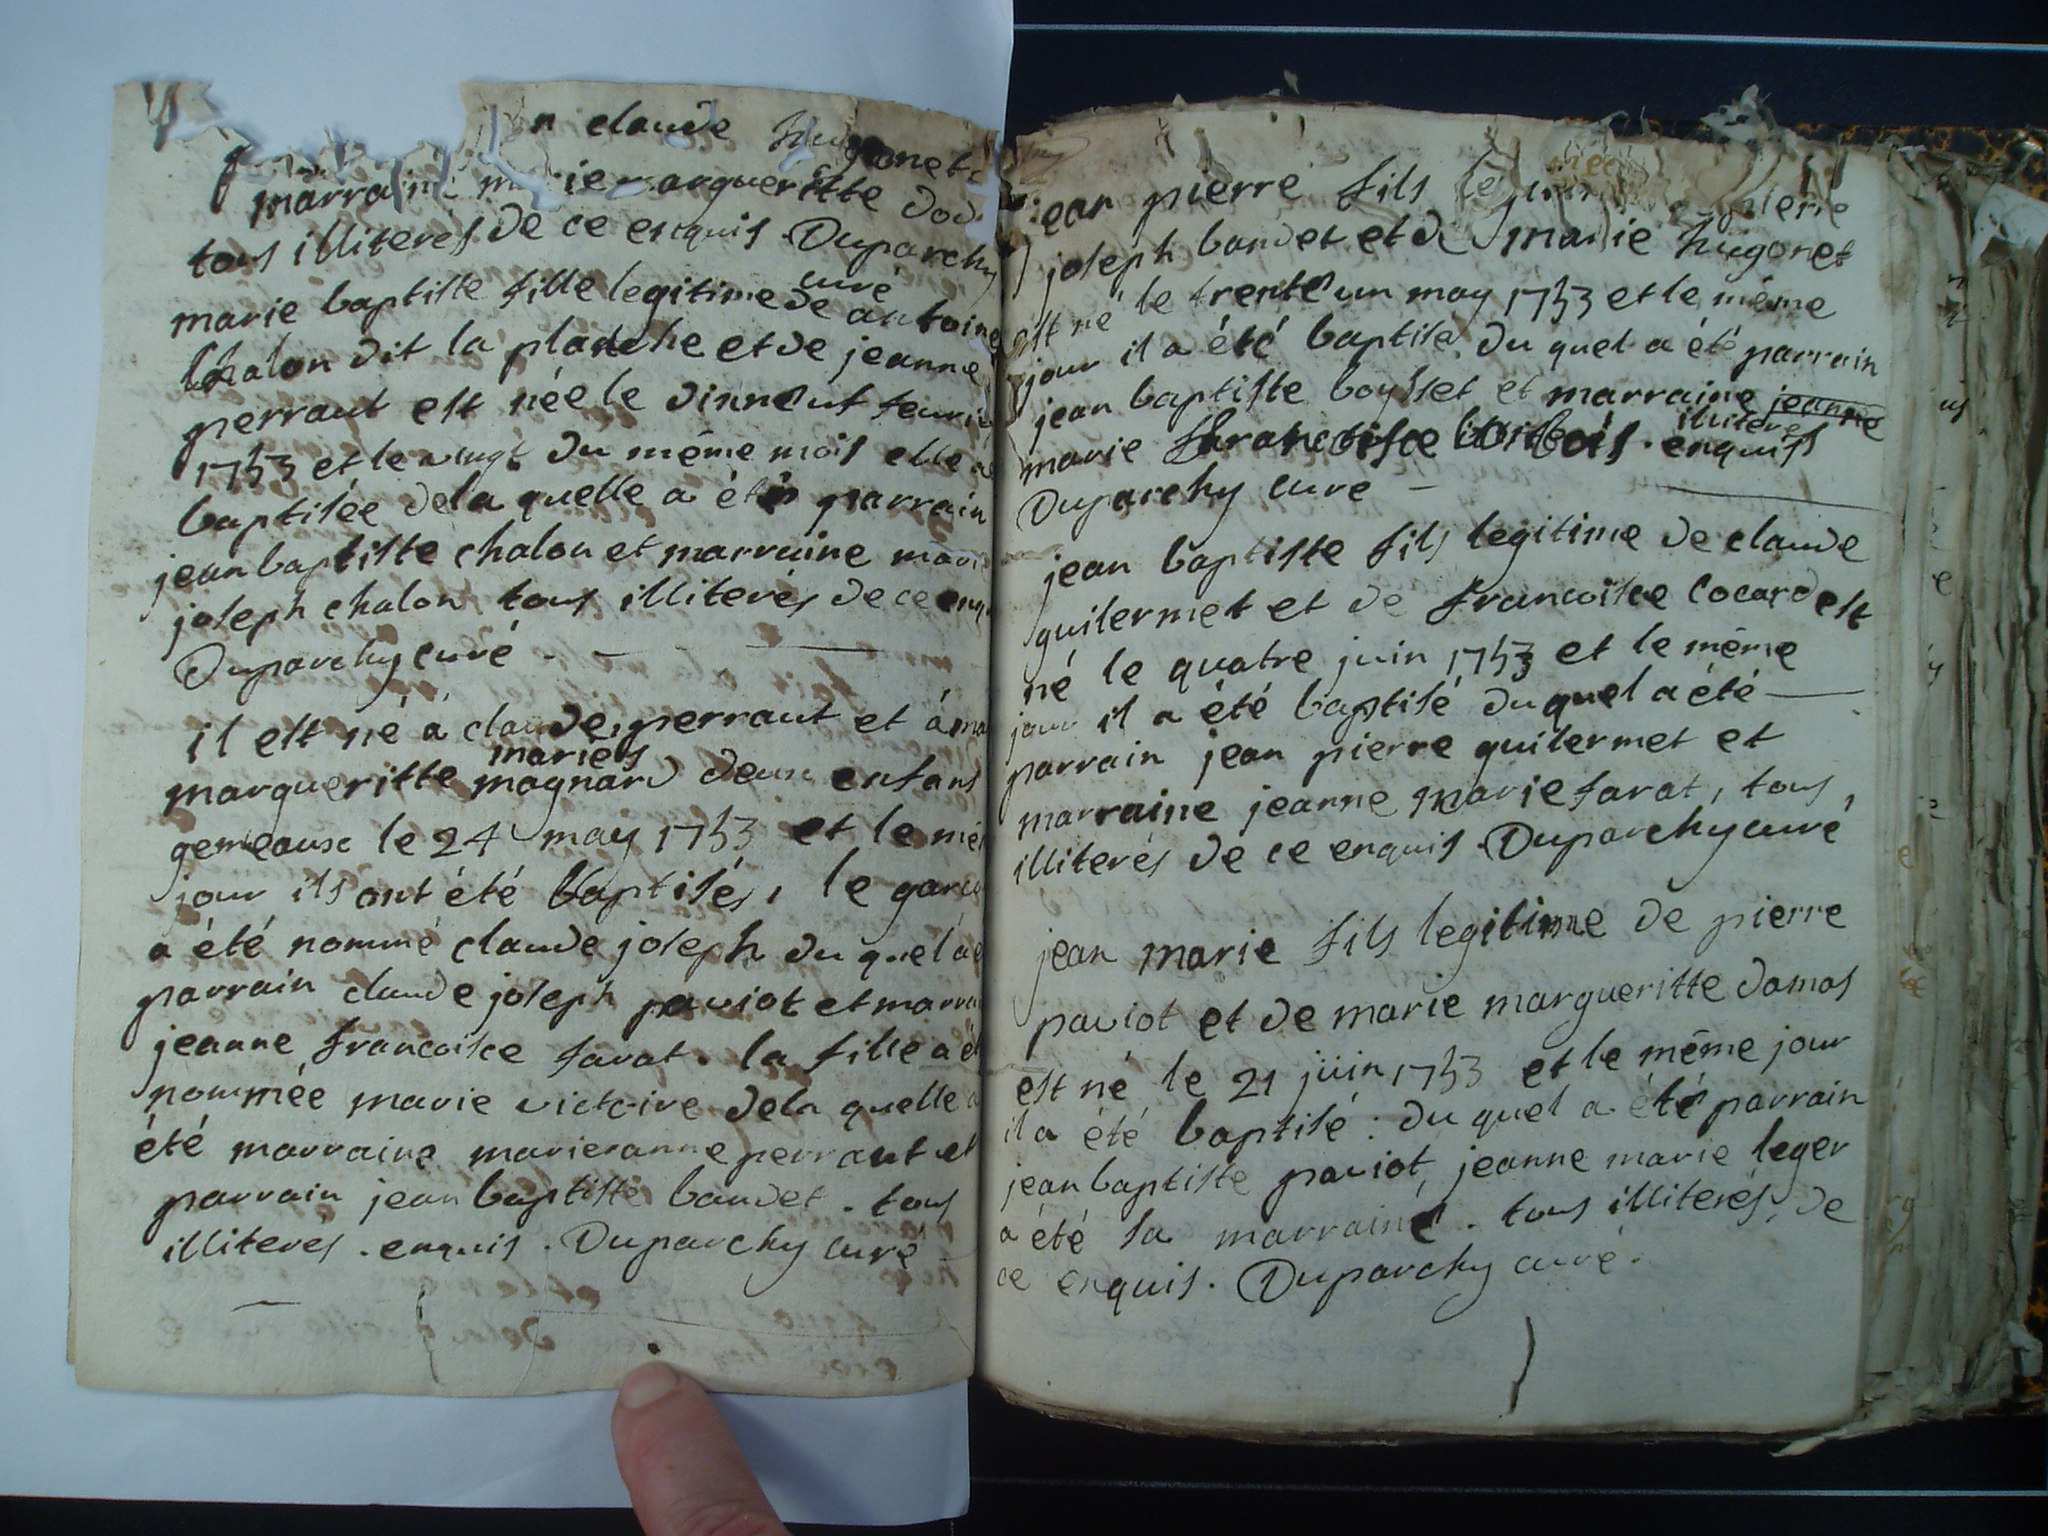 n claude hugonet
marraine marie margueritte
tous illiterés de ce enquis. Duparchy
curé
marie baptiste fille legitime de antoine
Chalon dit la planche et de jeanne
perraut est née le dixneuf feuri
1753 et le vingt du même mois elle a
baptisée dela quelle a été parrain
jean baptiste chalon et marraine marie
joseph chalon tous illiterés de ce enqu
Duparchy curé
il est né à claude perraut et à ma
mariés
margueritte magnard deux enfans
gemeaux le 24 may 1753 et le mê
jour ils ont été baptisés, le garco
a été nommé claude joseph du quel a é
parrain claude joseph paviot et marrai
jeanne francoisce farat. la fille a ét
nommée marie victoire dela quelle a
été marraine marieanne perraut et
parrain jean baptiste baudet. tous
illiterés. enquis. Duparchy curé
jean pierre fils pierre
joseph baudet et de marie hugonet
est né le trente un may 1753 et le même
jour il a été baptisé du quel a été parrain
jean baptiste boysset et marraine jeanne
illiterés
marie francoisce enquis
Duparchy curé
jean baptiste fils legitime de claude
guilermet et de francoisce cocard est
né le quatre juin 1753 et le même
jour il a été baptisé du quel a été
parrain jean pierre guilermet et
marraine jeanne marie farat, tous
illiterés de ce enquis. Duparchy curé
jean marie fils legitime de pierre
paviot et de marie margueritte damas
est né le 21 juin 1753 et le même jour
il a été baptisé: du quel a été parrain
jean baptiste paviot, jeanne marie leger
a été la marraine. tous illiterés, de
ce enquis. Duparchy curé.